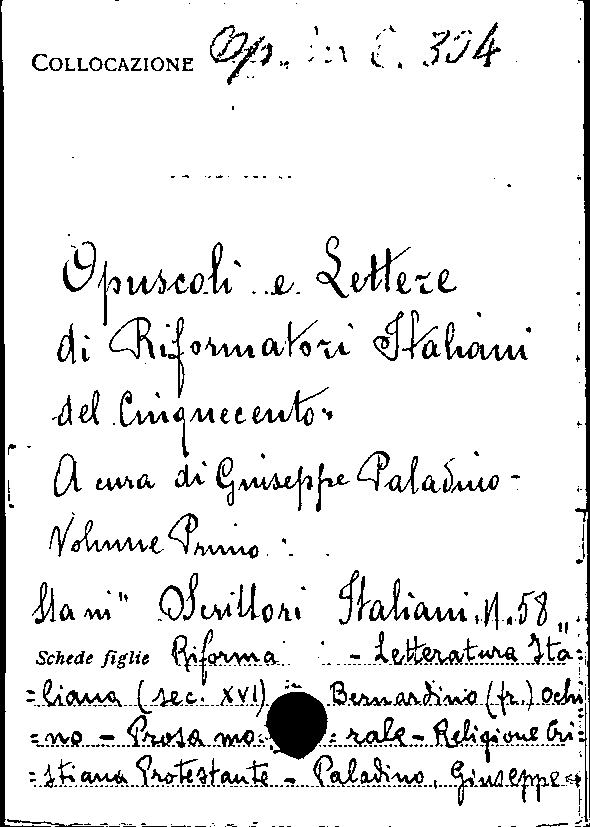 COLLOCAZIONE Op. in C. 304
Opuscoli e Lettere
di Riformatori Italiani
del Cinquecento.
A cura di Giuseppe Paladino -
Volume Primo.
Sta in "Scrittori Italiani, N. 58"
Schede figlie Riforma - Letteratura Ita=
=liana (sec. XVI) Bernardino (fr.) Ochi
=no - Prosa mo= =rale - Religione Cri=
=stiana Protestante - Paladino, Giuseppe